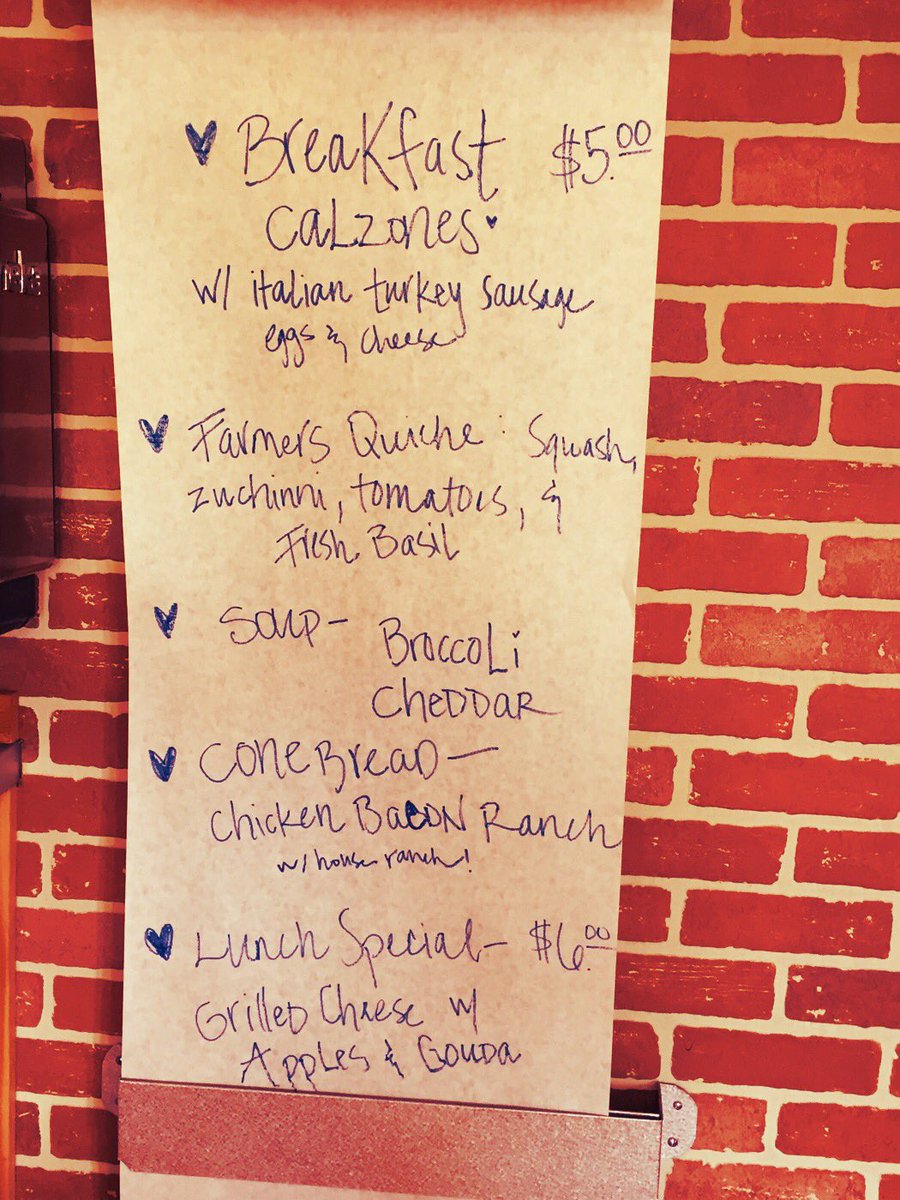 Breakfast $5.00
Calzones
w/ italian turkey sausage
eggs & cheese
Farmers Quiche : Squash,
zuchinni, tomatoes, &
Fresh Basil
Soup - Broccoli
Cheddar
Cone Bread -
Chicken Bacon Ranch
w/ house ranch!
Lunch Special - $6.00
Grilled Cheese w/
Apples & Gouda